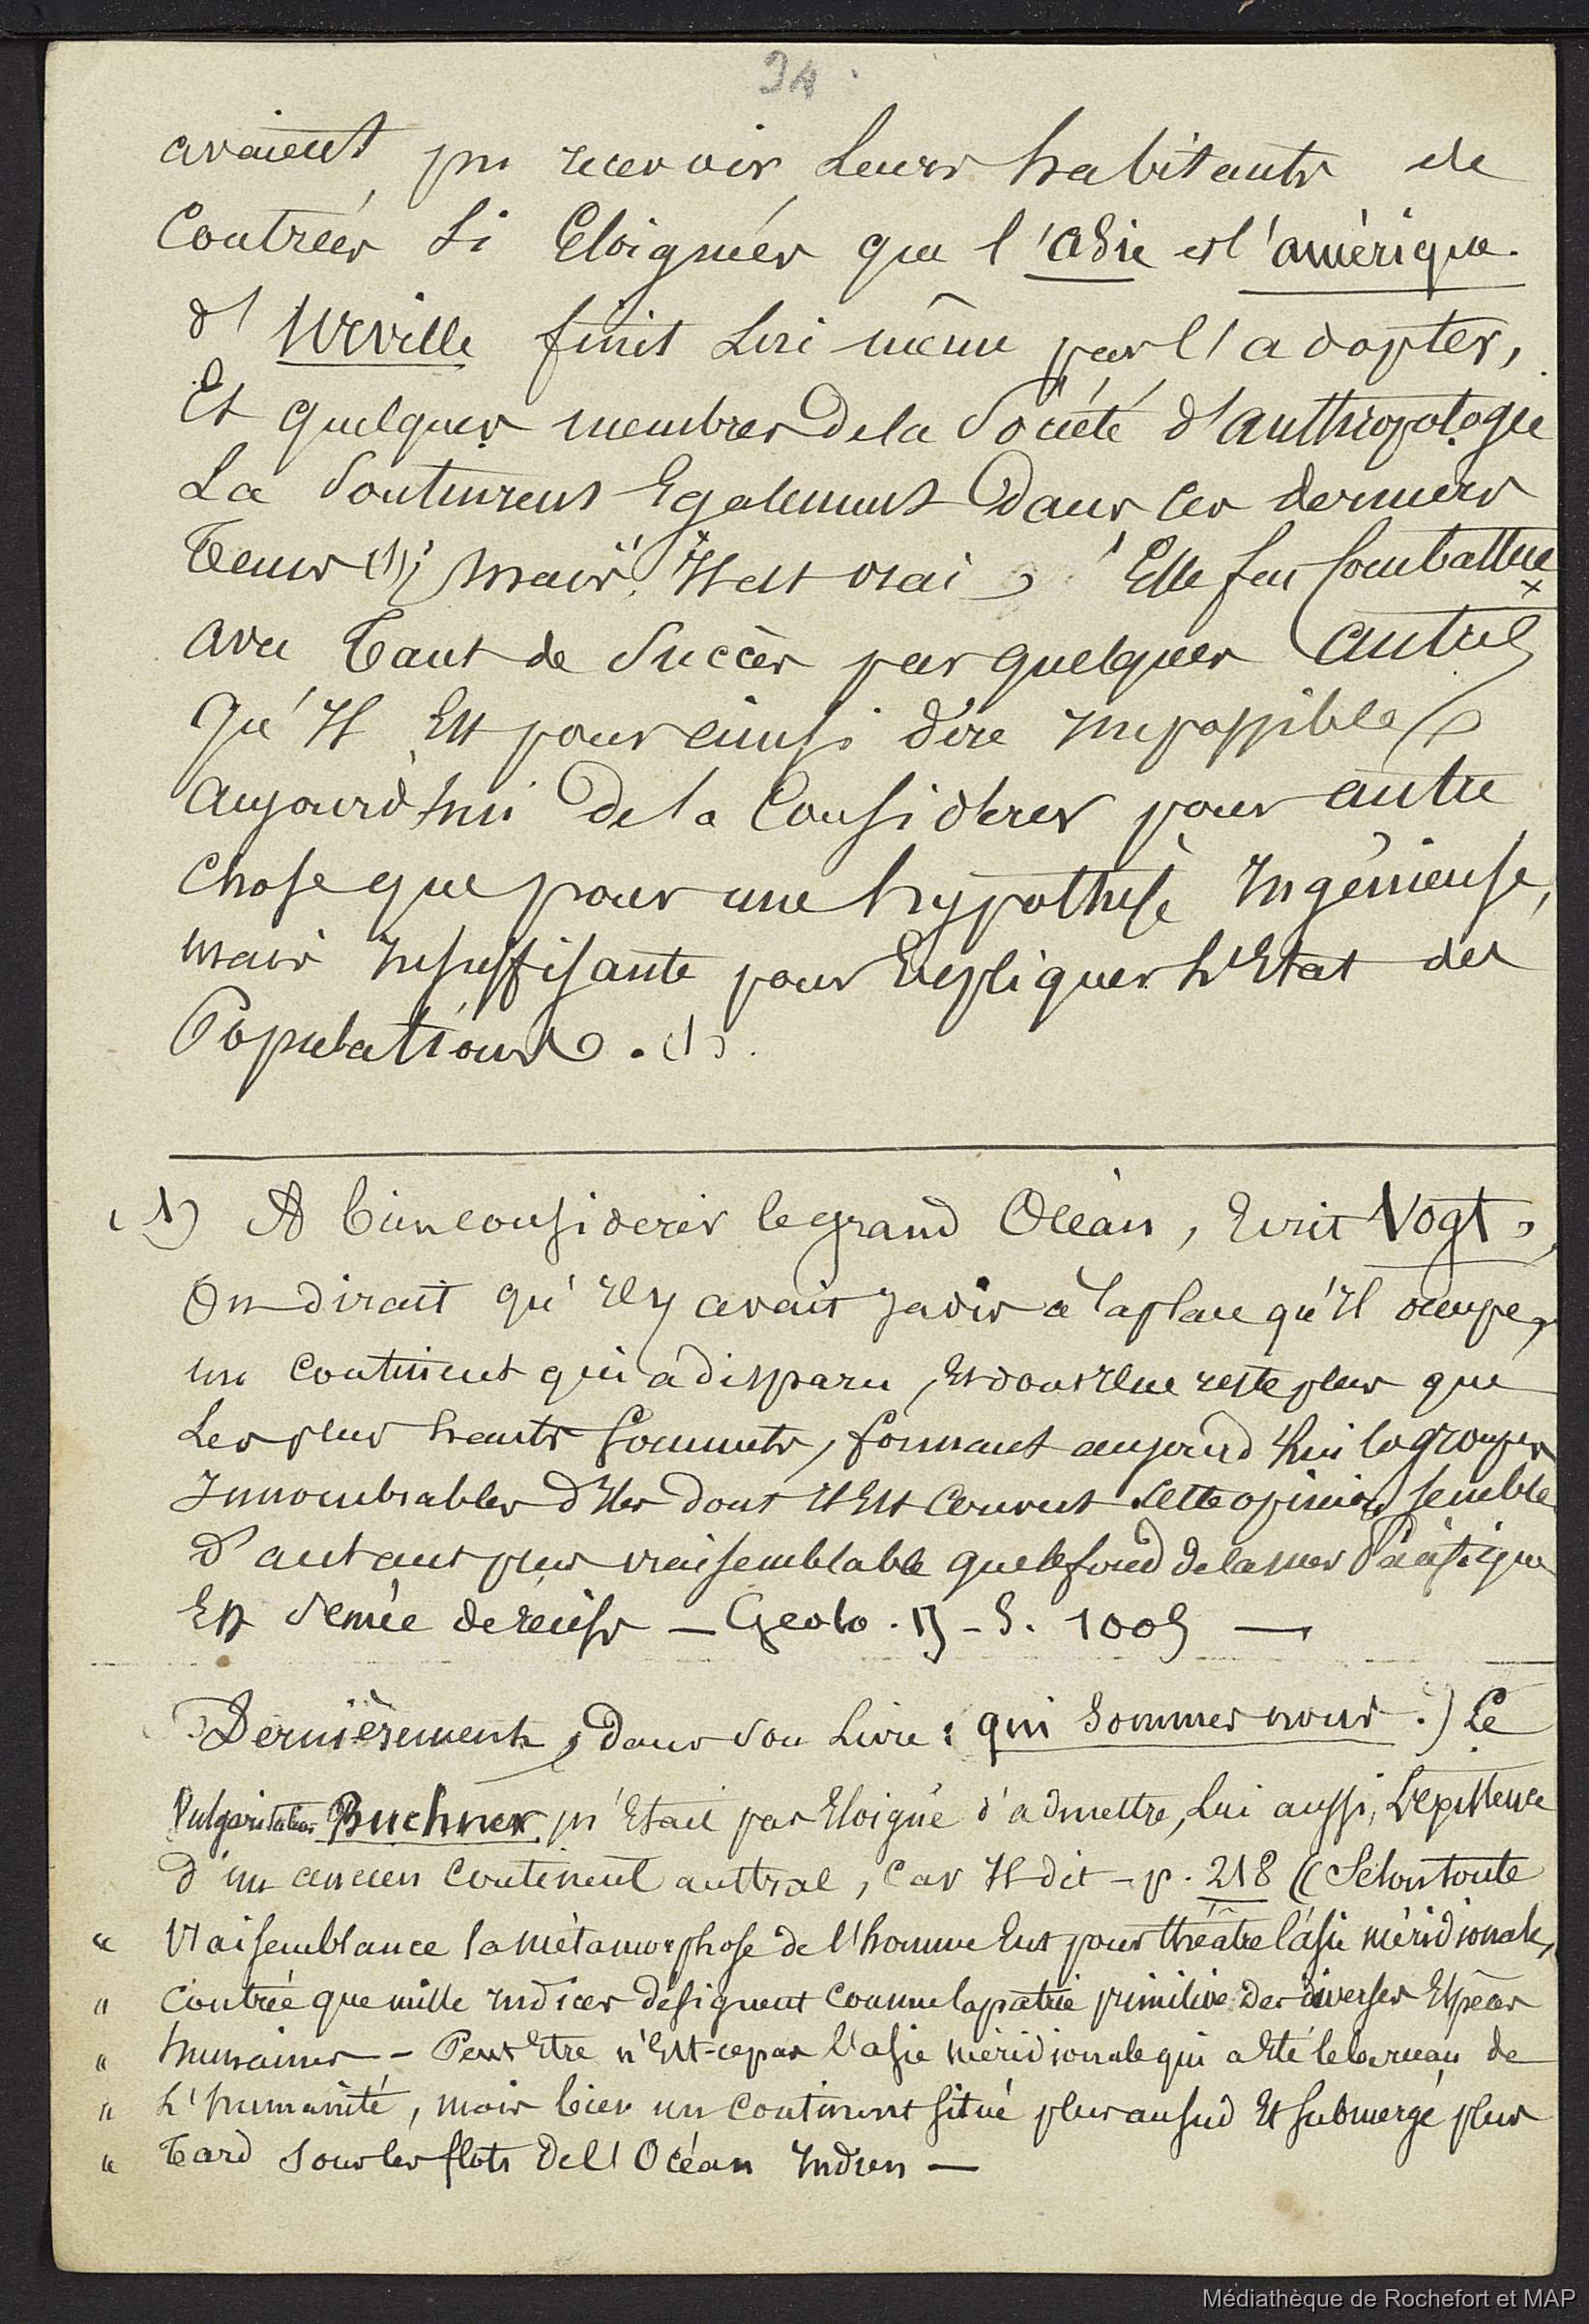 34
avaient pu recevoir leurs habitants de
contrées si Eloignées que l'asie et l'amérique.
d'Urville finit lui même par l'adopter,
Et quelques membres de la Société d'anthropologie
La Soutinrent Egalement dans ces derniers
Tems (1); mais, Il est vrai, Elle fut Combattue
avec Tant de Succès par quelques autres
Qu'Il Est pour ainsi dire Impossible
aujourd'hui de la Considérer pour autre
chose que pour une hypothèse Ingénieuse,
mais Insuffisante pour Expliquer L'Etat des
Populations. (1).
(1) A bien considerer le grand Océan, Ecrit Vogt,
On dirait qu'Il y avait Jadis à la place qu'Il occupe,
un continent qui a disparu, Et dont Il ne reste plus que
Les plus hauts Sommets, formant aujourd'hui les groupes
Innombrables d'Iles dont Il Est Couvert. Cette opinion semble
d'autant plus vraisemblable que le fond de la mer Pacifique
Est Semée de récifs — Geolo. 
Dernièrement, dans son Livre : qui Sommes nous .) Le
Vulgarisateur Buchner n'Etait pas Eloigné d'admettre, Lui aussi, L'existence
d'un ancien Continent austral, Car Il dit - p. 218 (( Selon toute
" Vraisemblance la métamorphose de l'homme Eut pour théatre l'asie méridionale,
" Contrée que mille Indices désignent comme la patrie primitive des diverses Espèces
" humaines - Peut Etre n'Est-ce pas l'asie méridionale qui a Eté le berceau de
" L'humanité, mais bien un Continent situé plus au sud Et submergé plus
" Tard sous les flots de l'Océan Indien —
Médiathèque de Rochefort et MAP